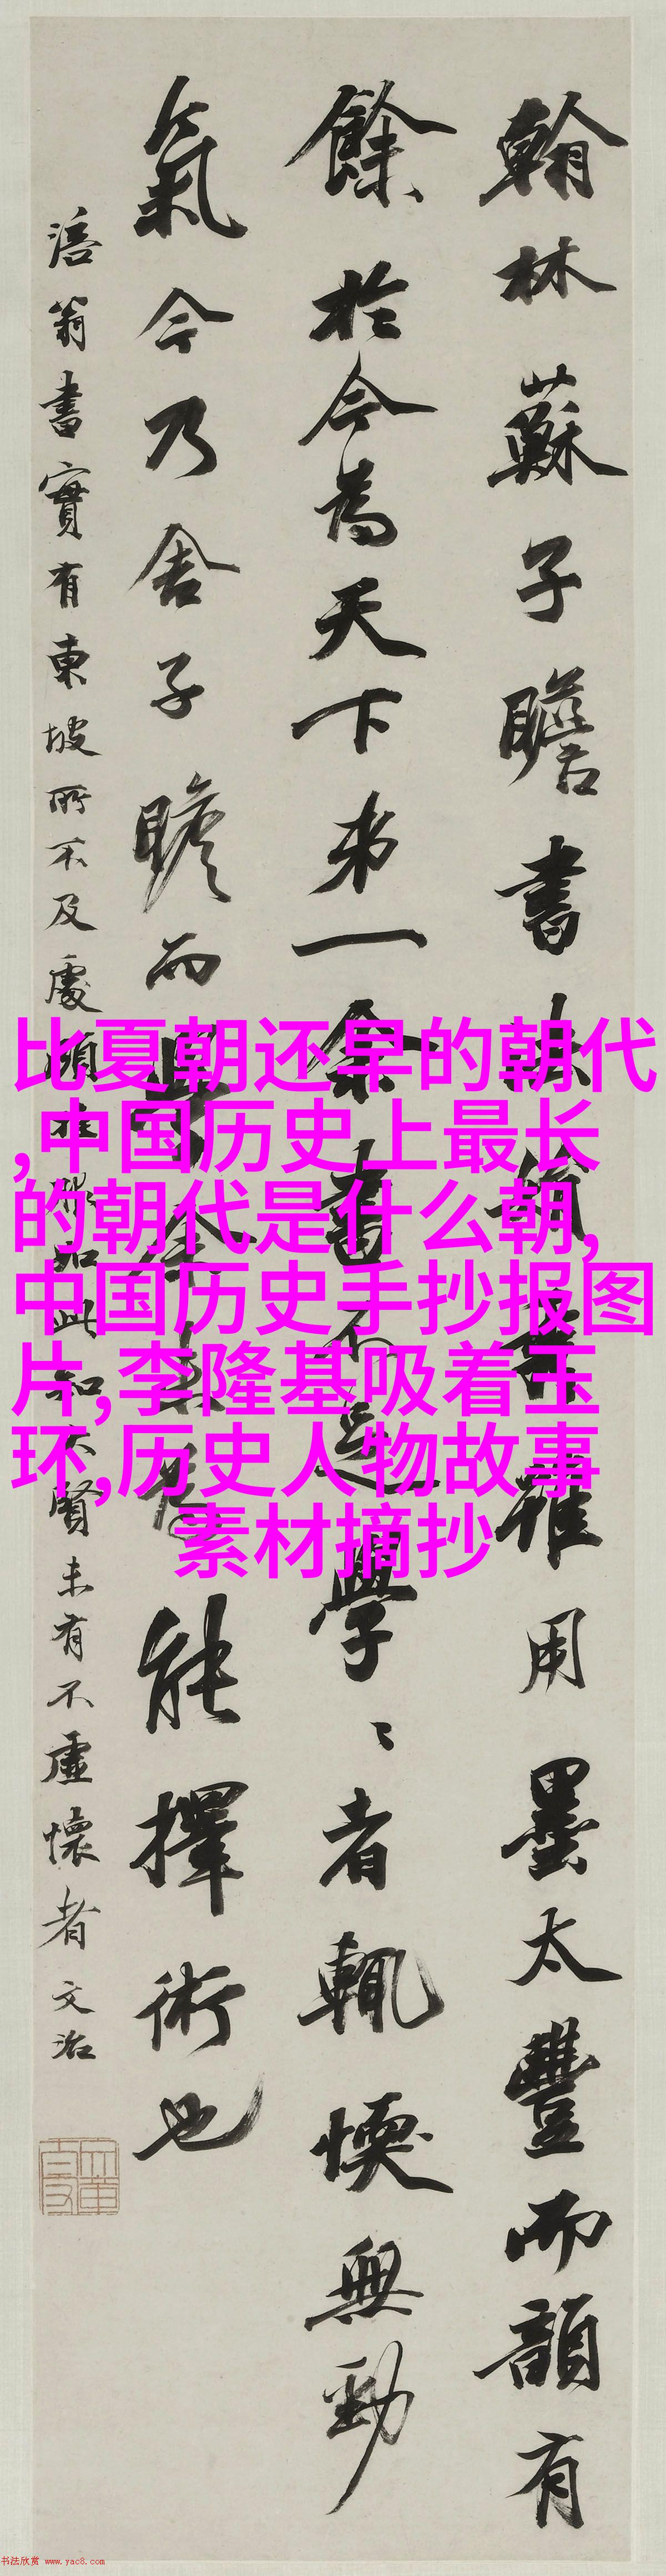 翰林蘇子瞻書法娟秀雖用墨太豐而韻有
餘於今為天下第一余書不足學〻者輒愞無勁
氣今乃舍子瞻而學余未為能擇術也
涪翁書實有東坡所不及處如此知大賢未有不虛懷者文治
比夏朝还早的朝代
,中国历史上最长
的朝代是什么朝,
中国历史手抄报图
片,李隆基吸着玉
环,历史人物故事
素材摘抄
书法欣赏 www.yac8.com